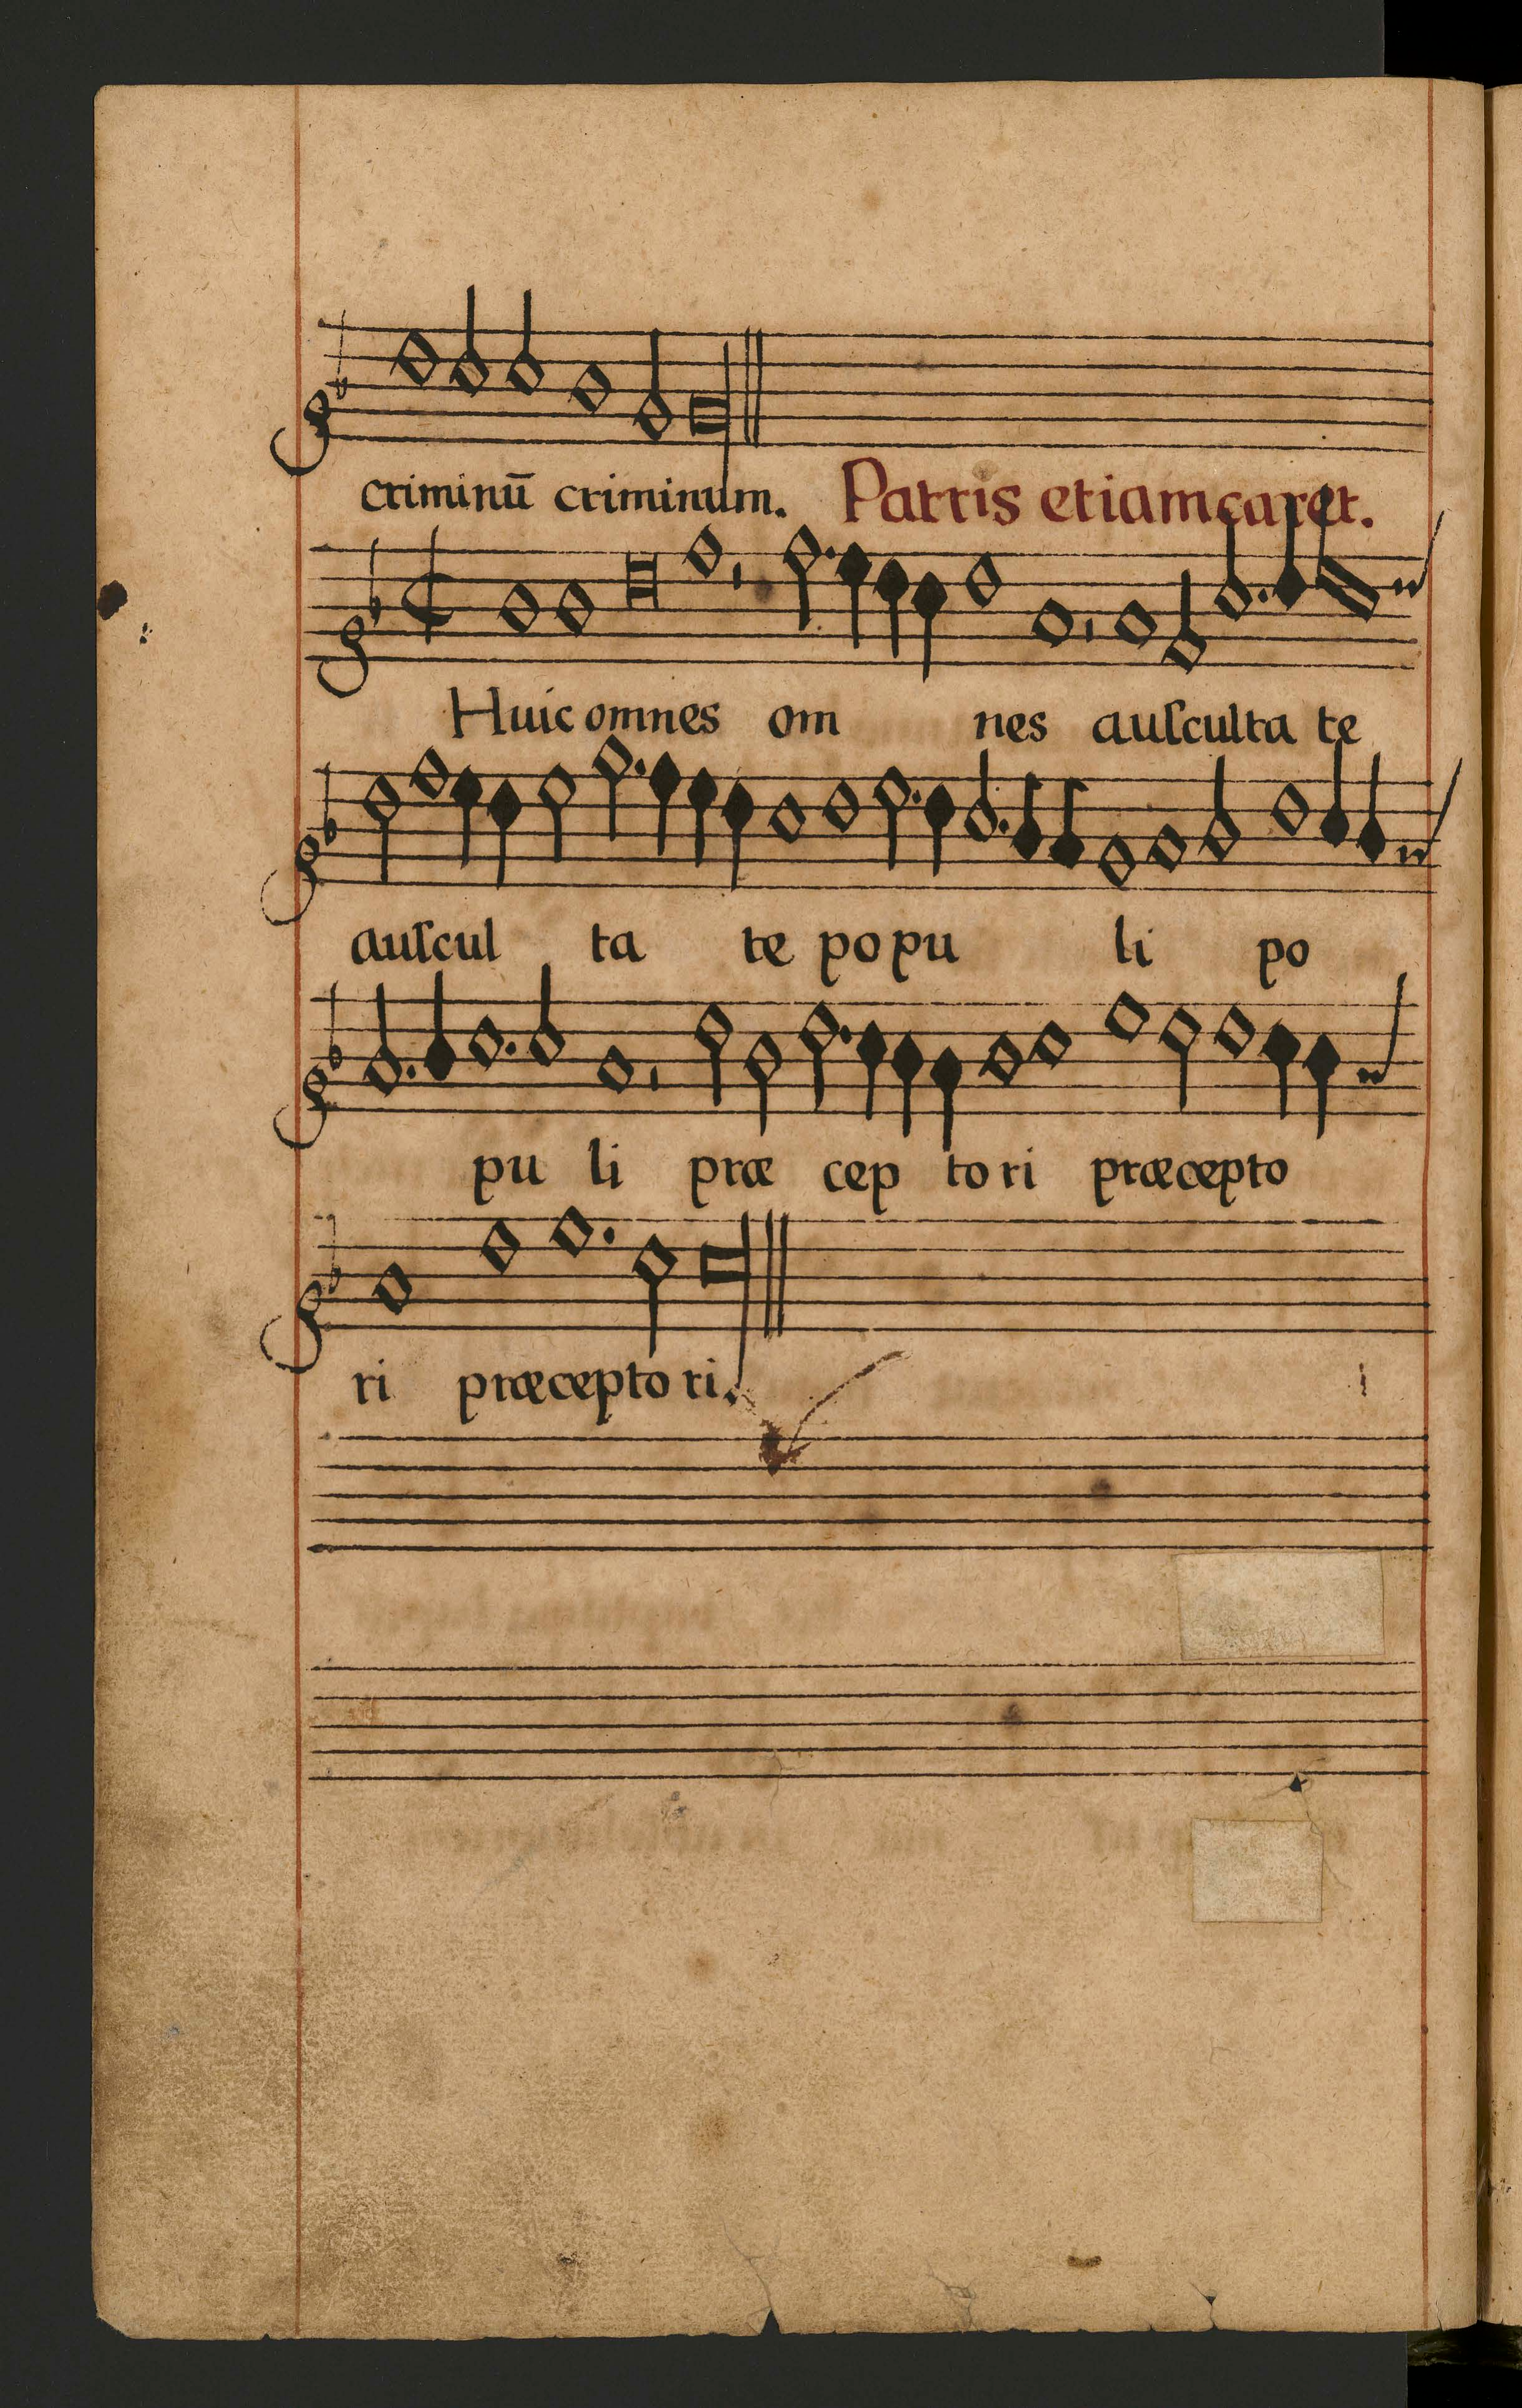 criminū criminum. Patris etiam caret.
Huic omnes om nes auſculta te
auſcul ta te popu li po
pu li præ cep to ri præcepto
ri præcepto ri.